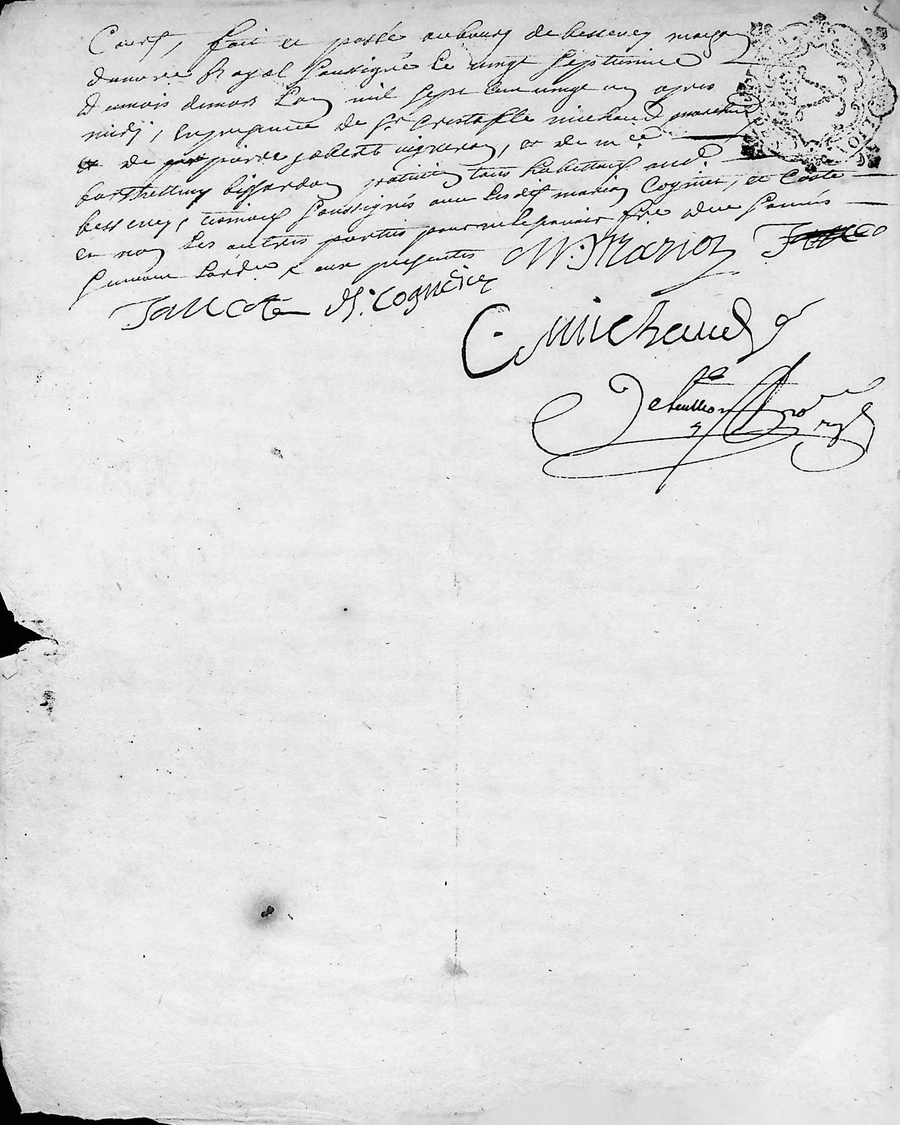 Cours, fait et passé au bourg de bessenay maison
du no.re Royal soussigné le vingt septieme
du mois de mars l'an mil sept cent vingt un apres
midy, en presence de s.r Cristofle michaud marchand
et de pierre jabert vigneron, et de m.e
barthellemy praticien tous habitans aud.
bessenay, temoins soussignés avec lesd. marion Cognier, et Coste
et non les autres parties pour ne le scavoir f.re de ce sommés
suivant l'ordre & aux presentes M. Marion
Jan Cote M. Cognier
C michaud
no.re